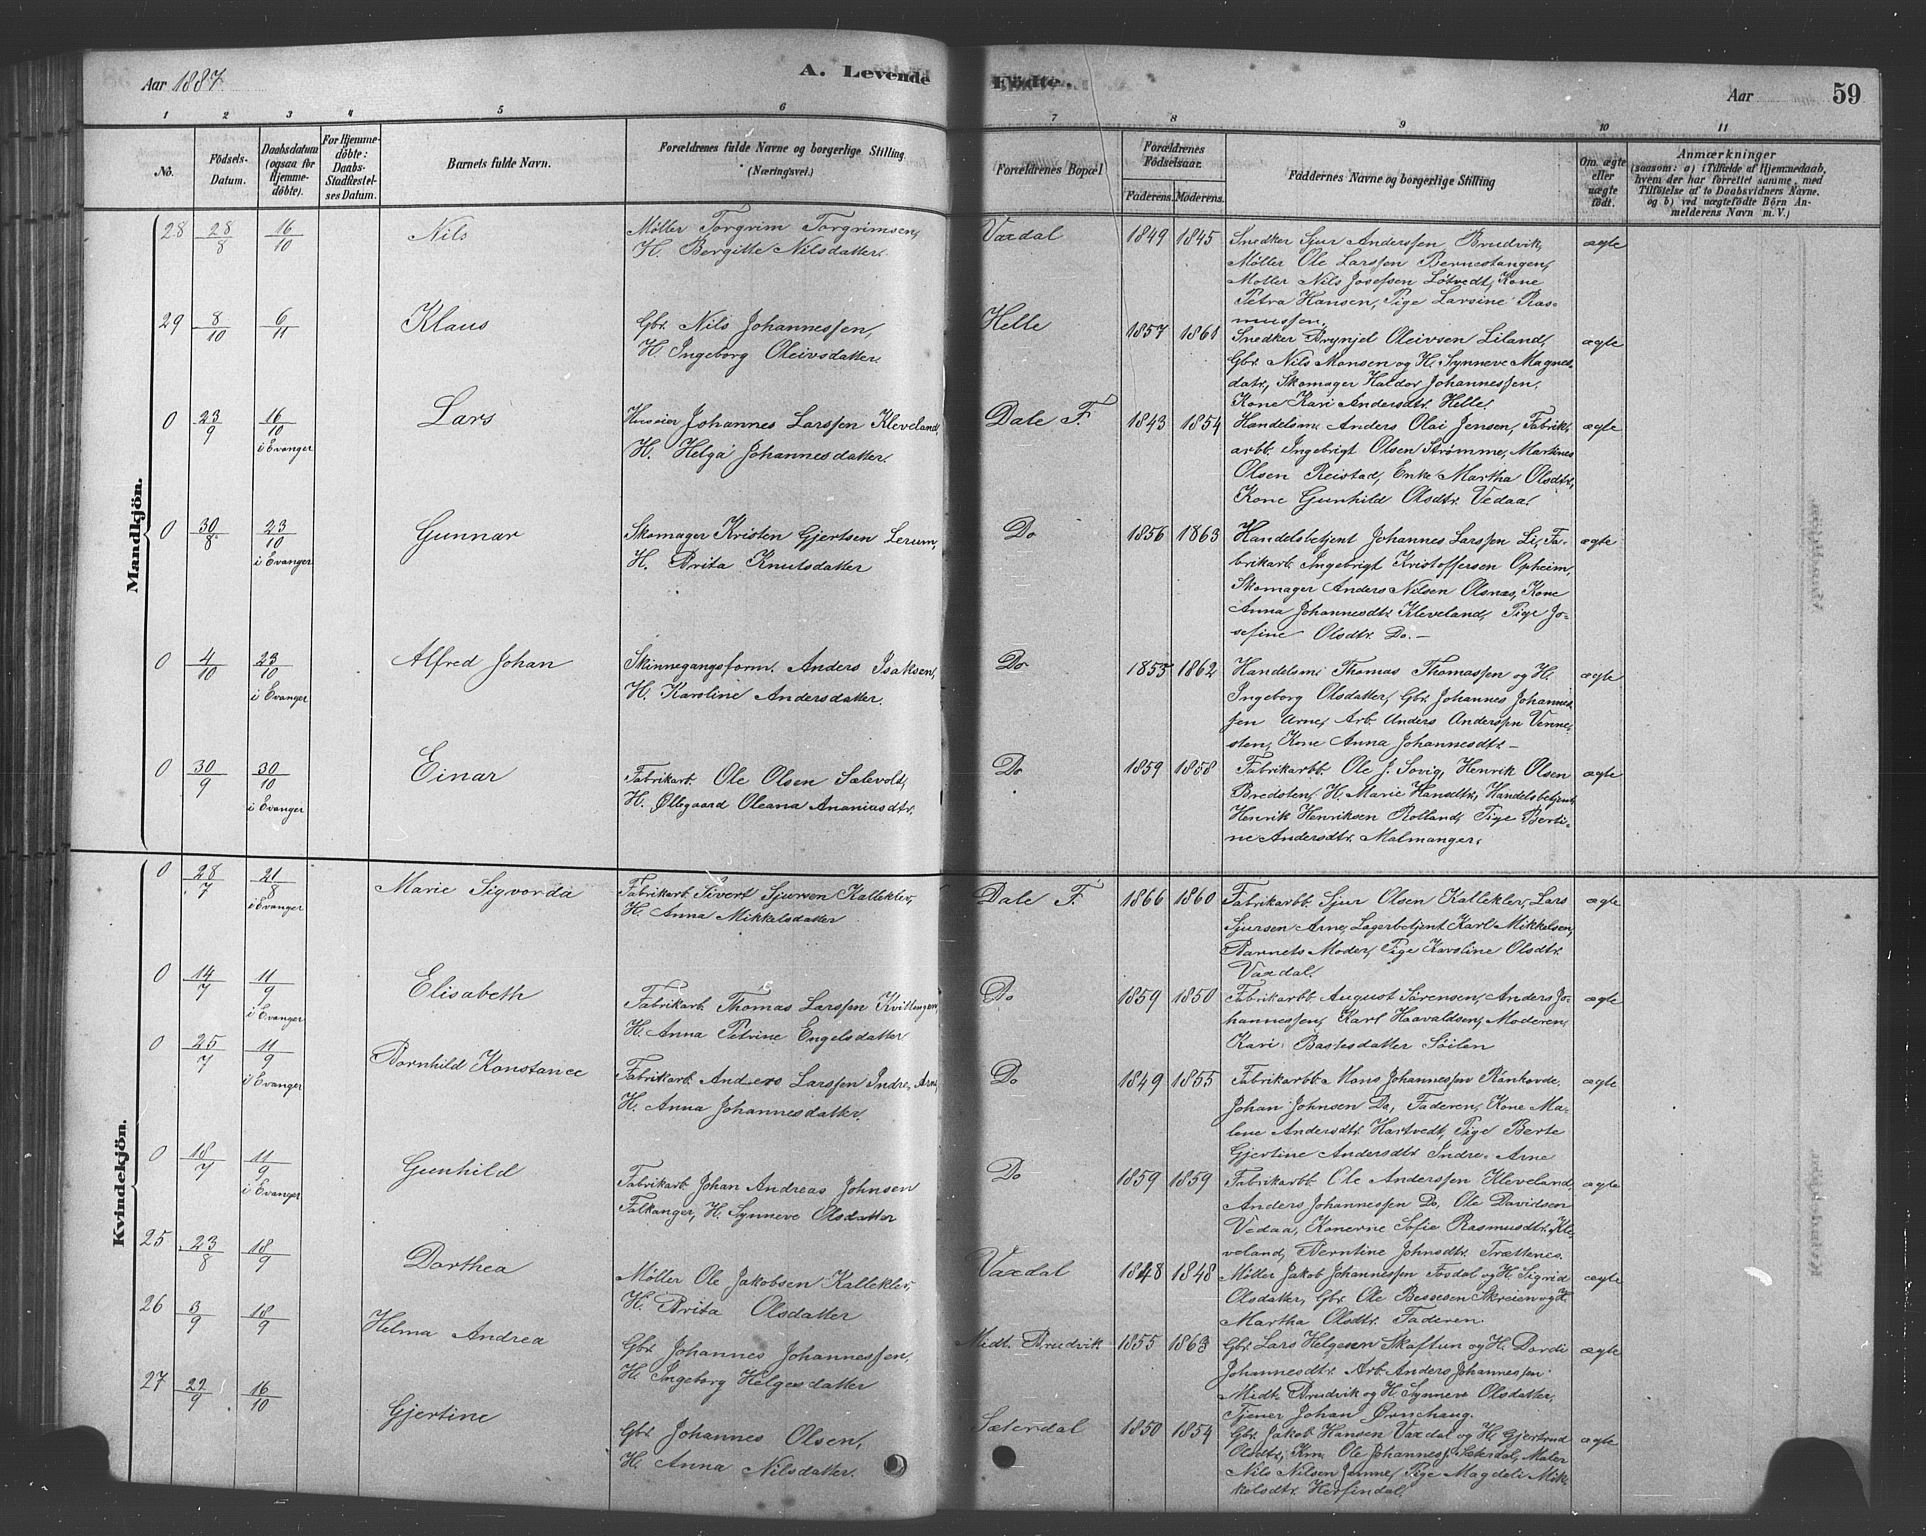 Aar 1887.
A. Levende Födte.
Aar
59
1 2 3 4 5 6 7 8 9 10 11
No.
Födsels-
Datum.
Daabsdatum
(ogsaa för
Hjemme-
döbte).
For Hjemme-
döbte:
Daabs-
Stadfæstel-
ses Datum.
Barnets fulde Navn.
Forældrenes fulde Navne og borgerlige Stilling
(Næringsvei.)
Forældrenes Bopæl
Forældrenes
Födselsaar.
Faderens. Moderens.
Faddernes Navne og borgerlige Stilling
Om ægte
eller
uægte
födt.
Anmærkninger
(saasom: a) i Tilfælde af Hjemmedaab,
hvem der har forrettet samme, med
Tilföielse af to Daabsvidners Navne.
og b) ved uægtefödte Börn An-
melderens Navn m. V.)
Mandkjön.
28 28/8 16/10 Nils
Møller Torgrim Torgrimsen,
H. Bergitte Nilsdatter.
Vaxdal 1849 1845
Snedker Sjur Anderssen Brudvik,
Møller Ole Larssen Bernestangen,
Møller Nils Josefsen Løtvedt, Kone
Petra Hansen, Pige Larsine Ras-
mussen,
ægte
29 8/10 6/11 Klaus
Gbr. Nils Johannessen,
H. Ingeborg Oleivsdatter.
Helle 1857 1861
Snedker Brynjel Oleivsen Liland,
Gbr. Nils Monsen og H. Synneve Magnes-
datr., Skomager Haldor Johannessen,
Kone Kari Andersdtr. Helle.
ægte
0 23/9 16/10 i Evanger Lars
Huseier Johannes Larssen Kleveland,
H. Helga Johannesdatter.
Dale F. 1843 1854
Handelsm. Anders Olai Jensen, Fabrik-
arbb. Ingebrigt Olsen Strømme, Martines
Olsen Reistad, Enke Martha Olsdtr.,
Kone Gunhild Olsdtr. Vedaa.
ægte
0 30/8 23/10 i Evanger Gunnar
Skomager Kristen Gjertsen Lerum,
H. Brita Knutsdatter
Do 1856 1863
Handelsbetjent Johannes Larssen Li, Fa-
brikarb. Ingebrigt Kristoffersen Opheim,
Skomager Anders Nilsen Olsnes, Kone
Anna Johannesdtr. Kleveland, Pige Jo-
sefine Olsdtr. Do. —
ægte
0 4/10 23/10 i Evanger Alfred Johan
Skinnegangsform. Anders Isaksen,
H. Karoline Andersdatter.
Do 1853 1862
Handelsm. Thomas Thomassen og H.
Ingeborg Olsdatter, Gbr. Johannes Johannes-
sen Arne, Arb. Anders Anderssen Venne-
sten, Kone Anna Johannesdtr. —
ægte
0 30/9 30/10 i Evanger Einar
Fabrikarb. Ole Olsen Sælevold,
H. Øllegaard Oleana Ananiasdtr.
Do 1859 1858
Fabrikarbb. Ole J. Sovig, Henrik Olsen
Bredsten, H. Marie Hansdtr., Handelsbetjent
Henrik Henriksen Rolland, Pige Berti-
ne Andersdtr. Malmanger.
ægte
Kvindekjön.
0 28/7 21/8 i Evanger Marie Sigvorda
Fabrikarb. Sivert Sjursen Kallekler,
H. Anna Mikkelsdatter
Dale F. 1866 1860
Fabrikarbb. Sjur Olsen Kallekler, Lars
Sjursen Arne, Lagerbetjent Karl Mikkelsen,
Barnets Moder, Pige Karoline Olsdtr.
Vaxdal.
ægte
0 14/7 11/9 i Evanger Elisabeth
Fabrikarb. Thomas Larssen Kvittingen,
H. Anna Petrine Engelsdatter
Do 1859 1850
Fabrikarbb. August Sørensen, Anders Jo-
hannessen, Karl Haavaldsen, Moderen,
Kari Bastesdatter Söilen
ægte
0 25/7 11/9 i Evanger Bornhild Konstance
Fabrikarb. Anders Larssen Indre, Arne
H. Anna Johannesdatter.
Do 1849 1855
Fabrikarbb. Mons Johannessen Rankovde,
Johan Johnsen Do, Faderen, Kone Ma-
lene Andersdtr. Hartvedt, Pige Berte
Gjertine Andersdtr. Indre Arne
ægte
0 18/7 11/9 i Evanger Gunhild
Fabrikarb. Johan Andreas Johnsen
Falkanger, H. Synneve Olsdatter
Do 1859 1859
Fabrikarbb. Ole Anderssen Kleveland,
Anders Johannessen Do, Ole Davidsen
Vedaa, Konerne Sofie Rasmusdtr. Kle-
veland, Berntine Johnsdtr. Trættenes.
ægte
25 23/8 18/9 Dorthea
Møller Ole Jakobsen Kallekler,
H. Brita Olsdatter
Vaxdal 1848 1848
Møller Jakob Johannessen Fosdal og H. Sigrid
Olsdatter, Gbr. Ole Bessesen Skreien og H.
Martha Olsdtr. Faderen.
ægte
26 3/9 18/9 Helma Andrea
Gbr. Johannes Johannessen,
H. Ingeborg Helgesdatter
Midt. Brudvik 1855 1863
Gbr. Lars Helgesen Skaftun og H. Dordi
Johannesdtr. Arb. Anders Johannessen
Midt. Brudvik og H. Synneve Olsdatter,
Tjener Johan Ørnehaug.
ægte
27 22/9 16/10 Gjertine
Gbr. Johannes Olsen,
H. Anna Nilsdatter.
Sæterdal 1850 1854
Gbr. Jakob Hansen Vaxdal og H. Gjertrud
Olsdtr., Km. Ole Johanness. Sæterdal, Maler
Nils Nilsen Jamne, Pige Magdeli Mik-
kelsdtr. Herfindal.
ægte